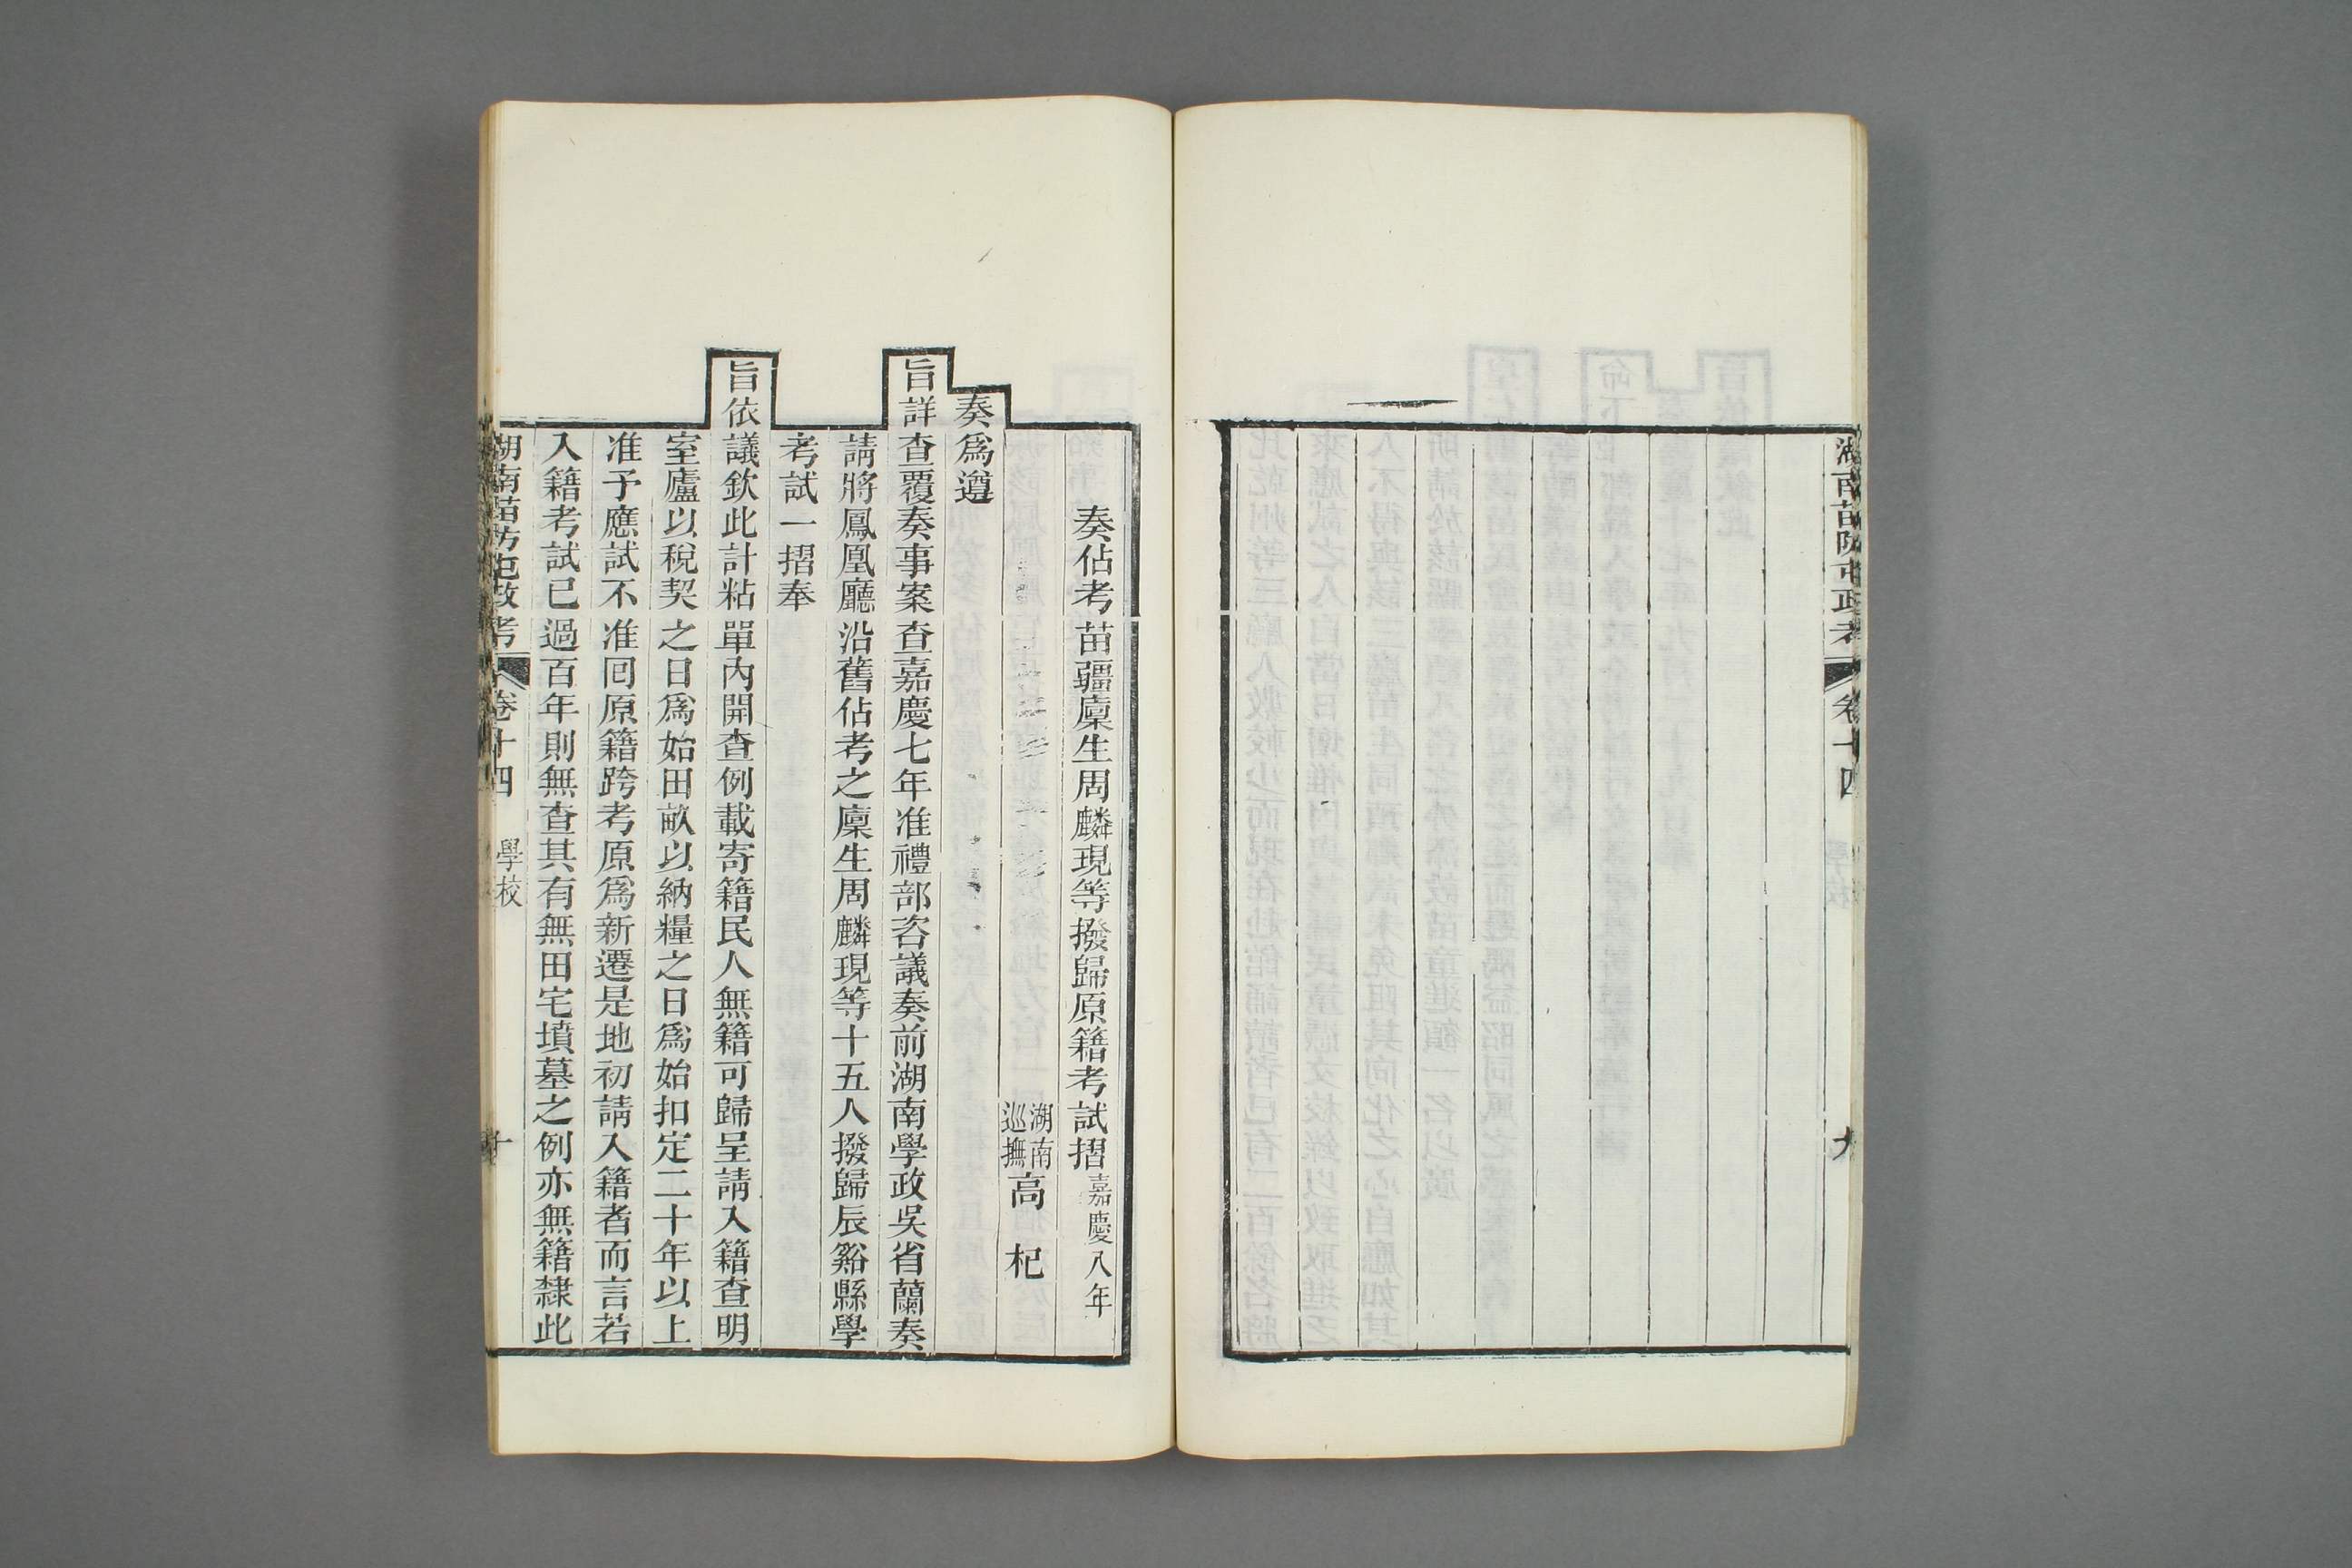 湖南苗防屯政考 卷十四 九
奏佔考苗疆廩生周麟現等撥歸原籍考試摺嘉慶八年
湖南巡撫高杞
奏爲遵
旨詳查覆奏事案查嘉慶七年准禮部咨議奏前湖南學政吳省蘭奏
請將鳳凰廳沿舊佔考之廩生周麟現等十五人撥歸辰谿縣學
考試一摺奉
旨依議欽此計粘單內開查例載寄籍民人無籍可歸呈請入籍查明
室廬以稅契之日爲始田畝以納糧之日爲始扣定二十年以上
准予應試不准囘原籍跨考原爲新遷是地初請入籍者而言若
入籍考試已過百年則無查其有無田宅墳墓之例亦無籍隸此
湖南苗防屯政考 卷十四 學校 十